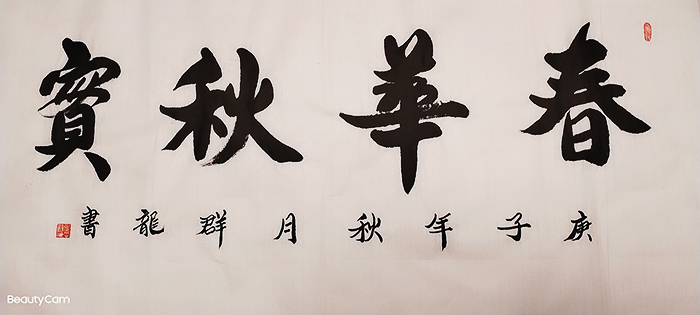 春華秋實
庚子年秋月群龍書
BeautyCam